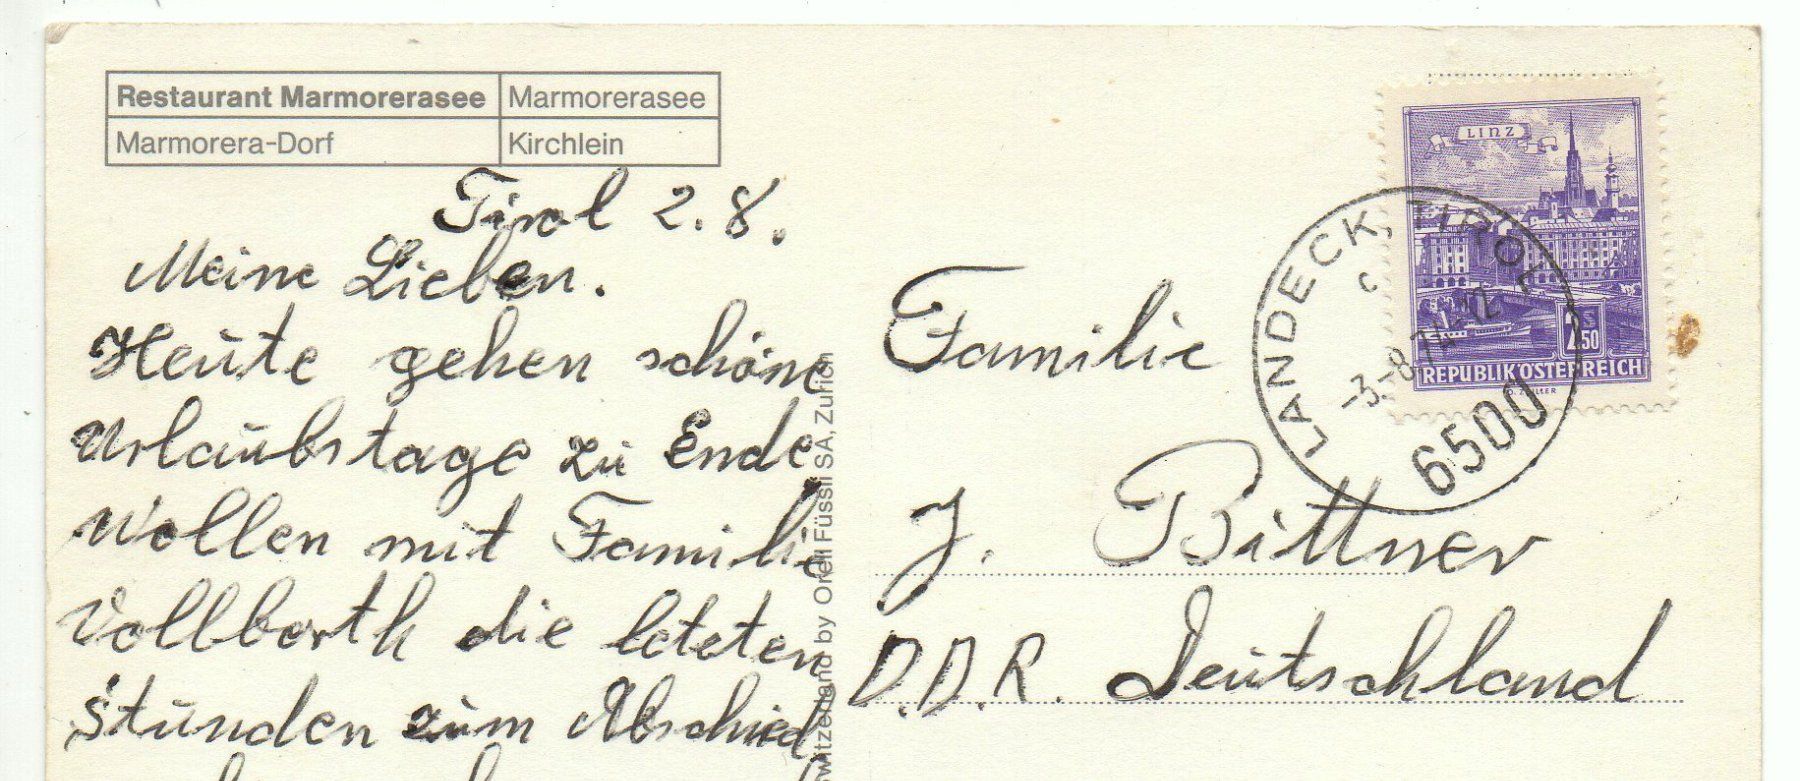 Restaurant Marmorerasee Marmorerasee
Marmorera-Dorf Kirchlein
Tirol 2.8.
Meine Lieben.
Heute gehen schöne
Urlaubstage zu Ende
Wollen mit Familie
Vollborth die letzten
Stunden zum Abschied
witzerland by Orell Füssli SA, Zürich
LINZ
2.50
S
REPUBLIK ÖSTERREICH
LANDECK, TIROL
c
-3.-8.74-12
6500
Familie
J. Bittner
D.D.R. Deutschland